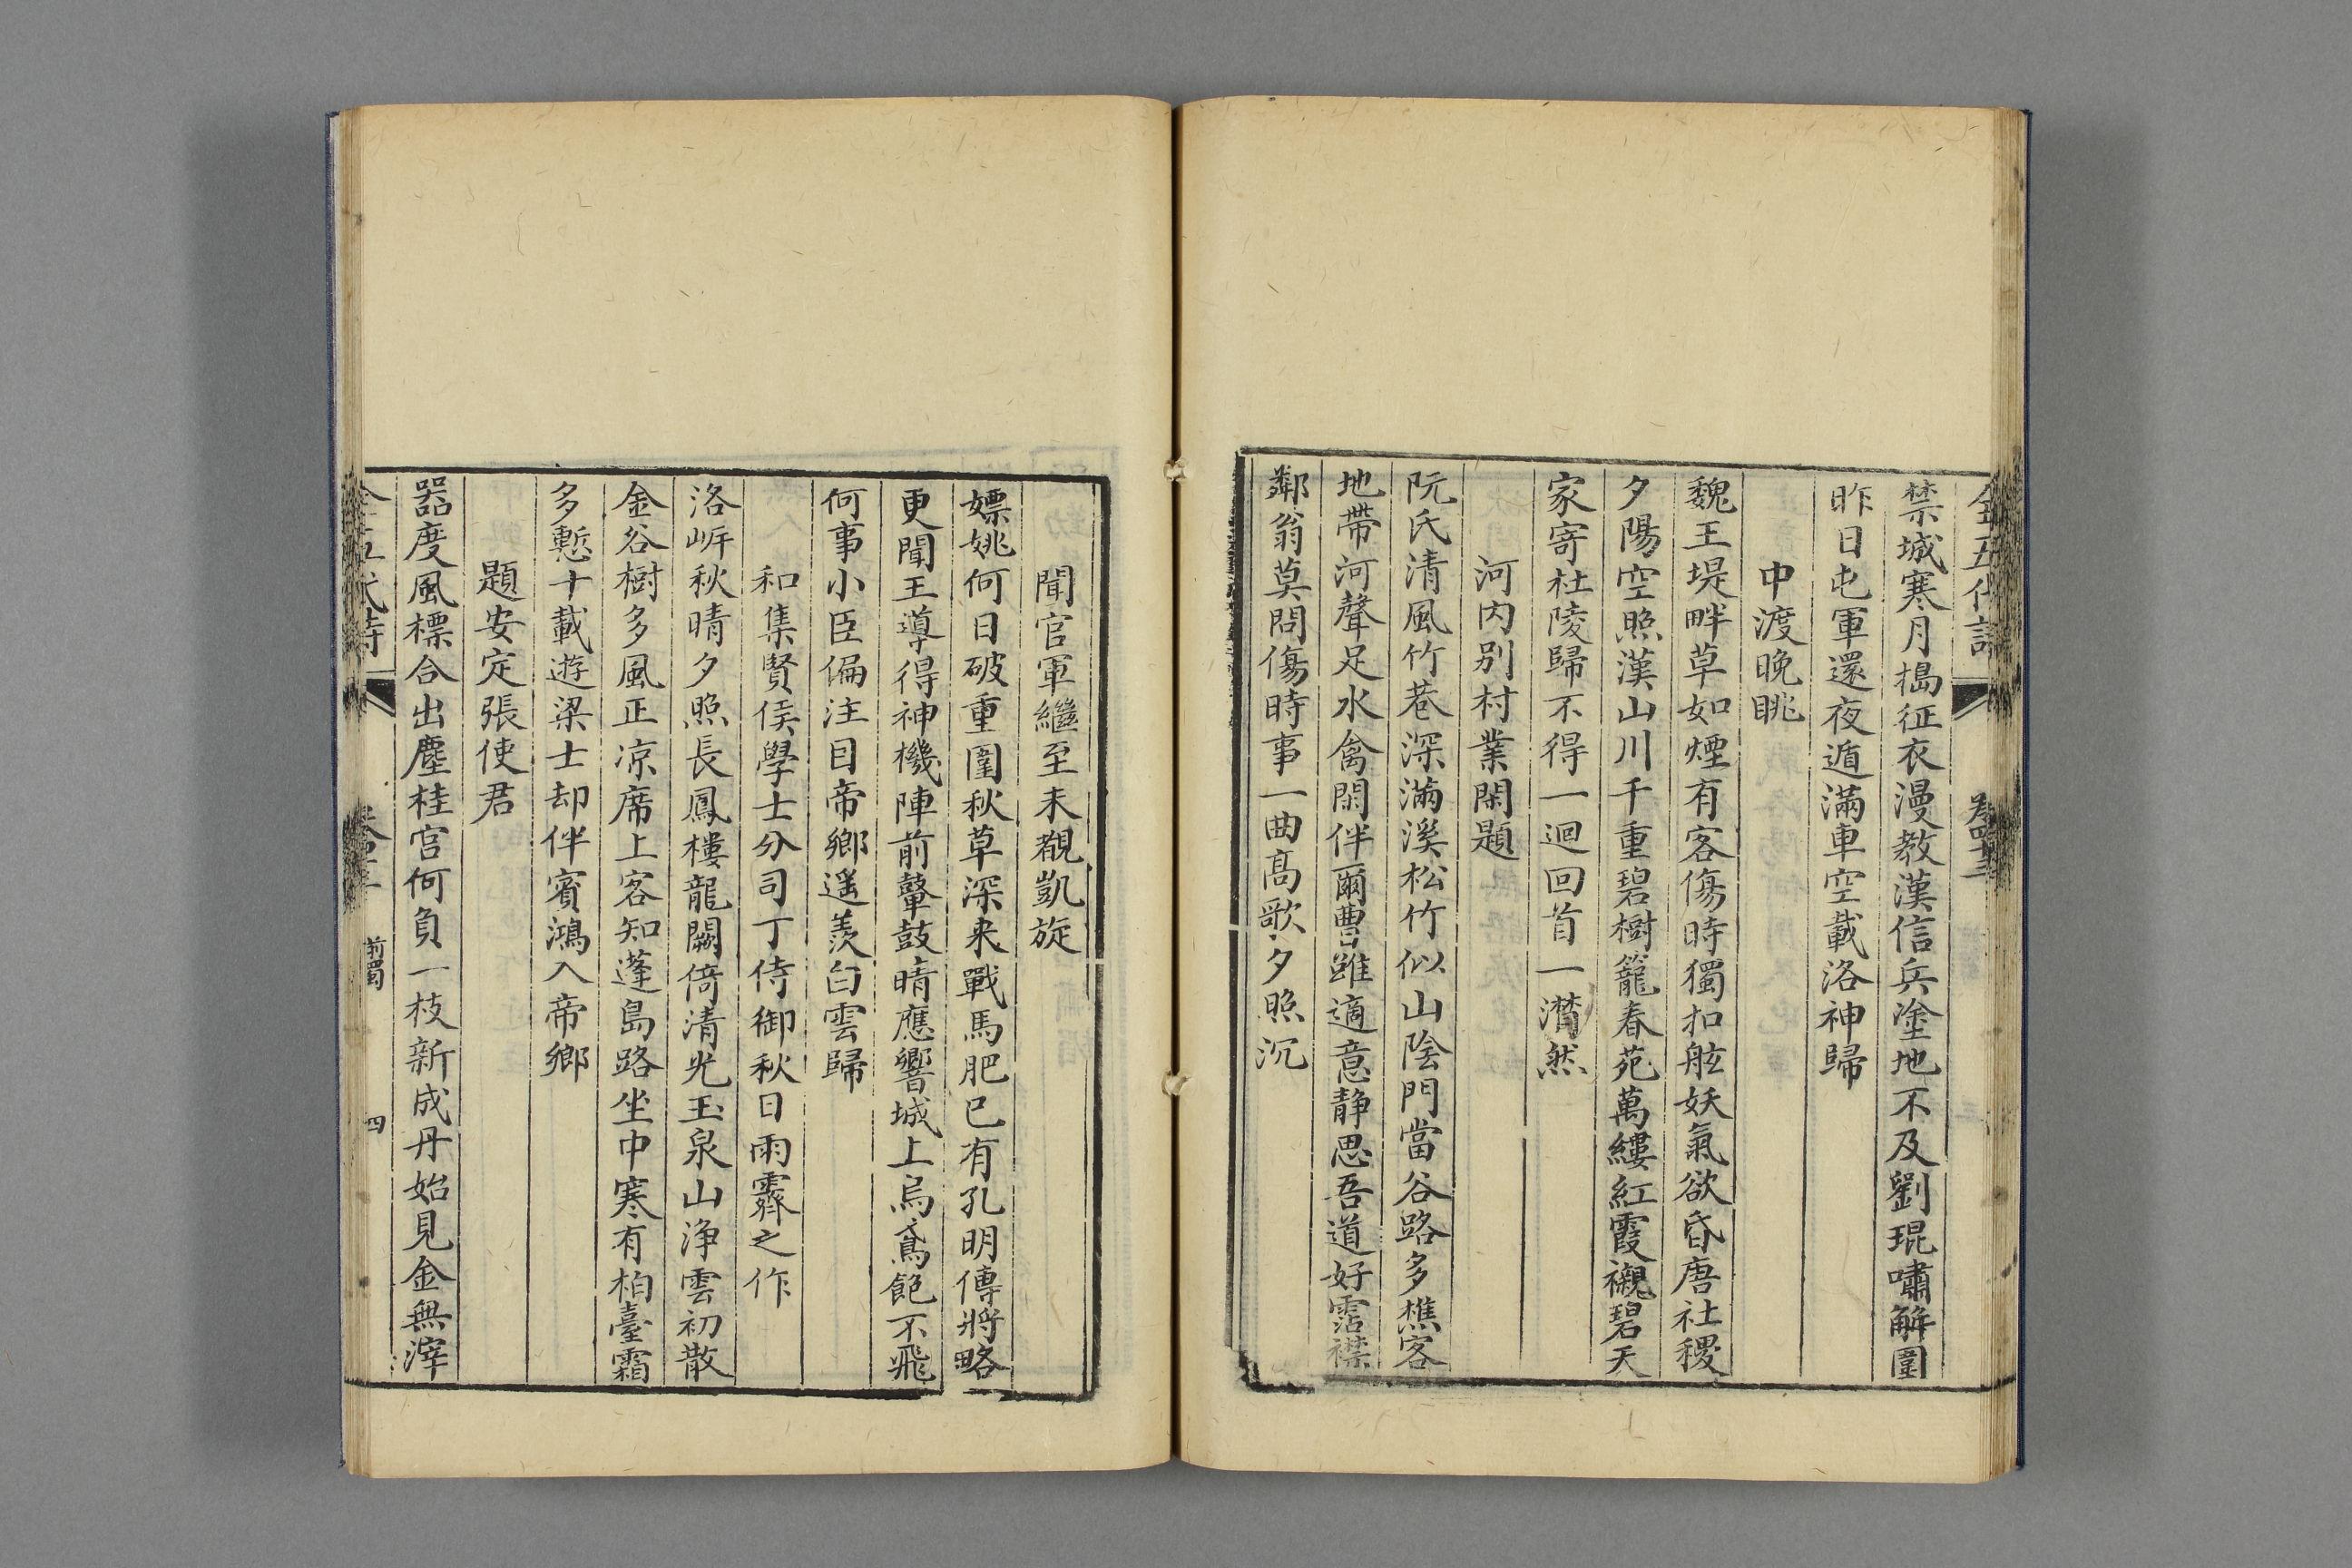 禁城寒月搗征衣漫教漢信兵塗地不及劉琨嘯解圍
昨日屯軍還夜遁滿車空載洛神歸
中渡晚眺
魏王堤畔草如煙有客傷時獨扣舷妖氣欲昏唐社稷
夕陽空照漢山川千重碧樹籠春苑萬縷紅霞襯碧天
家寄杜陵歸不得一迴回首一潸然
河内别村業閑題
阮氏清風竹巷深滿溪松竹似山陰門當谷路多樵客
地帶河聲足水禽閑伴爾曹雖適意静思吾道好霑襟
鄰翁莫問傷時事一曲髙歌夕照沉
聞官軍繼至未覩凱旋
嫖姚何日破重圍秋草深来戰馬肥已有孔明傳將略
更聞王導得神機陣前鼙鼓晴應響城上烏鳶飽不飛
何事小臣偏注目帝鄉遥羨白雲歸
和集賢侯學士分司丁侍御秋日雨霽之作
洛㟁秋晴夕照長鳳樓龍闕倚清光玉泉山浄雲初散
金谷樹多風正凉席上客知蓬島路坐中寒有柏臺霜
多慙十載遊梁士却伴賓鴻入帝鄉
題安定張使君
器度風標合出塵桂宫何負一枝新成丹始見金無滓
前蜀
四